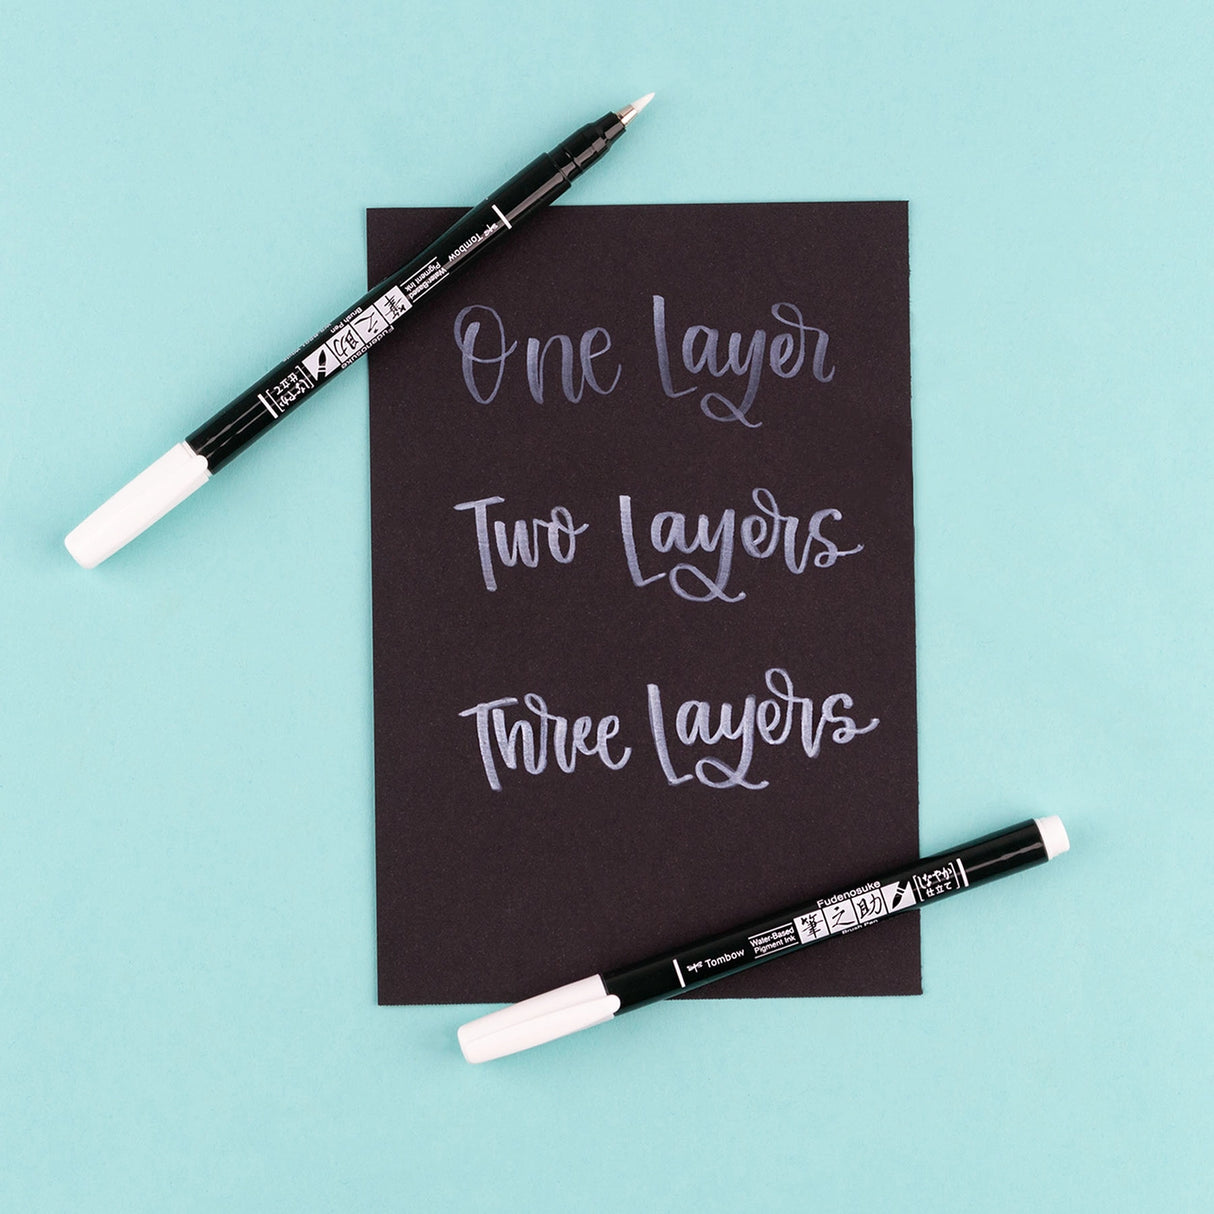 One Layer
Two Layers
Three Layers
Tombow
Water-Based
Pigment Ink
Fudenosuke
筆之助
Brush Pen
[しなやか
仕立て]
Tombow
Water-Based
Pigment Ink
Fudenosuke
筆之助
Brush Pen
[しなやか
仕立て]